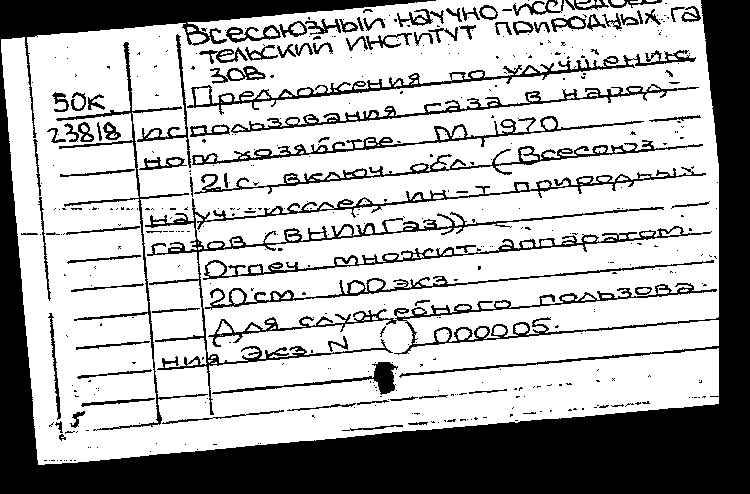 Всесоюзный научно-исследова
тельский институт природных га
зов.
50к. Предложения по улучшению
23818 использования газа в народ-
ном хозяйстве. М., 1970
21с., включ. обл. (Всесоюз.
науч.-исслед. ин-т природных
газов (ВНИИГаз)).
Отпеч. множит. аппаратом.
20 см. 100 экз.
Для служебного пользова-
ния. Экз. N 000005.